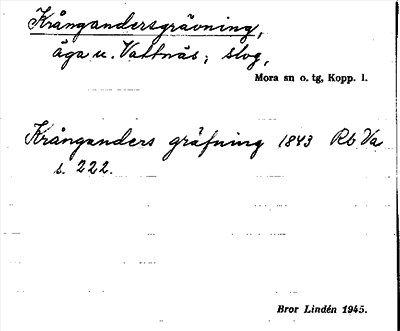 Krångandersgrävning,
äga u. Vattnäs; slog,
Mora sn o. tg, Kopp. l.
Krånganders gräfning 1843 Rb Va
s. 222.
Bror Lindén 1945.